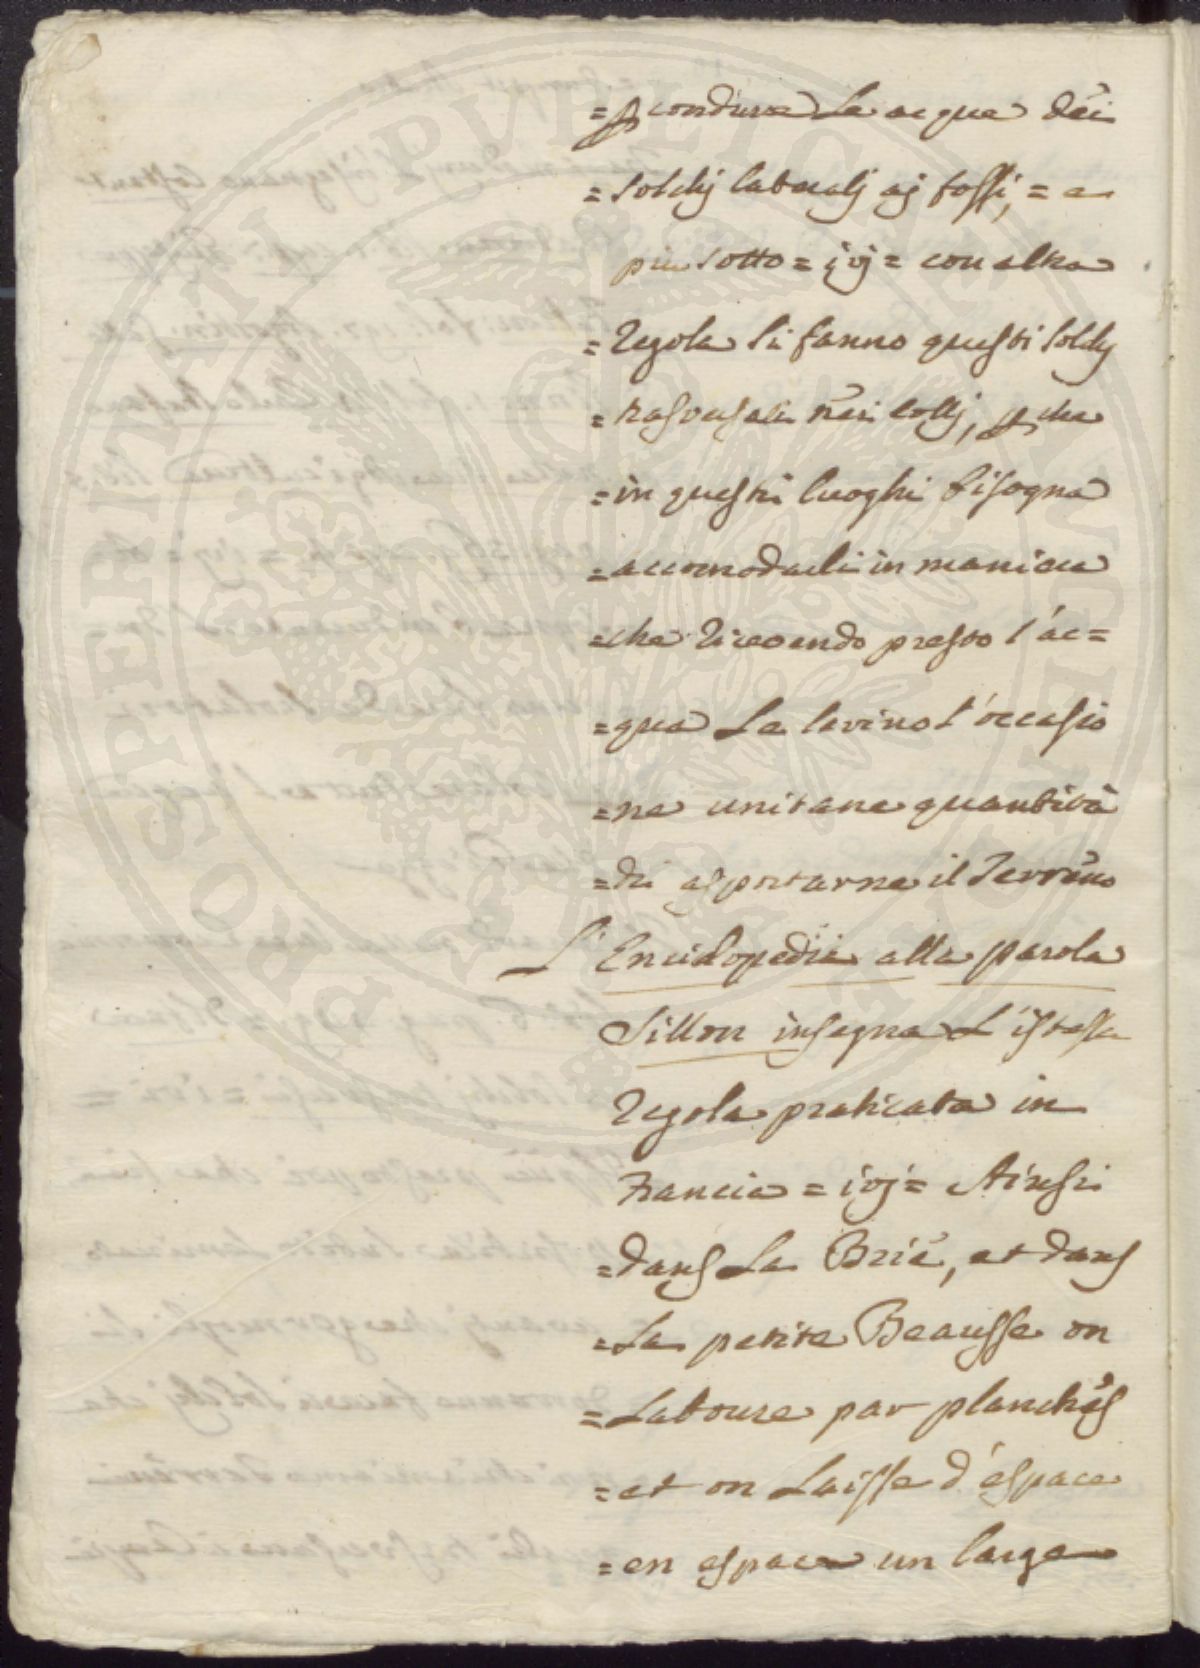 = p condure Le acque dèi
= Solchj lateralj aj fossi, = e
più sotto = ivj = con altra
= Regola Si fanno questi Solchj
= trasversali nèi Collj, p che
= in questi luoghi bisogna
= accomodarli in maniera
= che Ricevendo presto l'ac=
= qua La levino l'occasio
= ne unitane quantità
= di asportarne il Terreno
L' Encidopedia alla parola
Sillon insegna L'istessa
Regola praticata in
Francia = ivj = Ainsi
= dans La Brie, et dans
= La petite Beausse on
= Laboure par planchès
= et on Laisse d'éspace
= en espace un large
PUBLICAE
PROSPERITATI